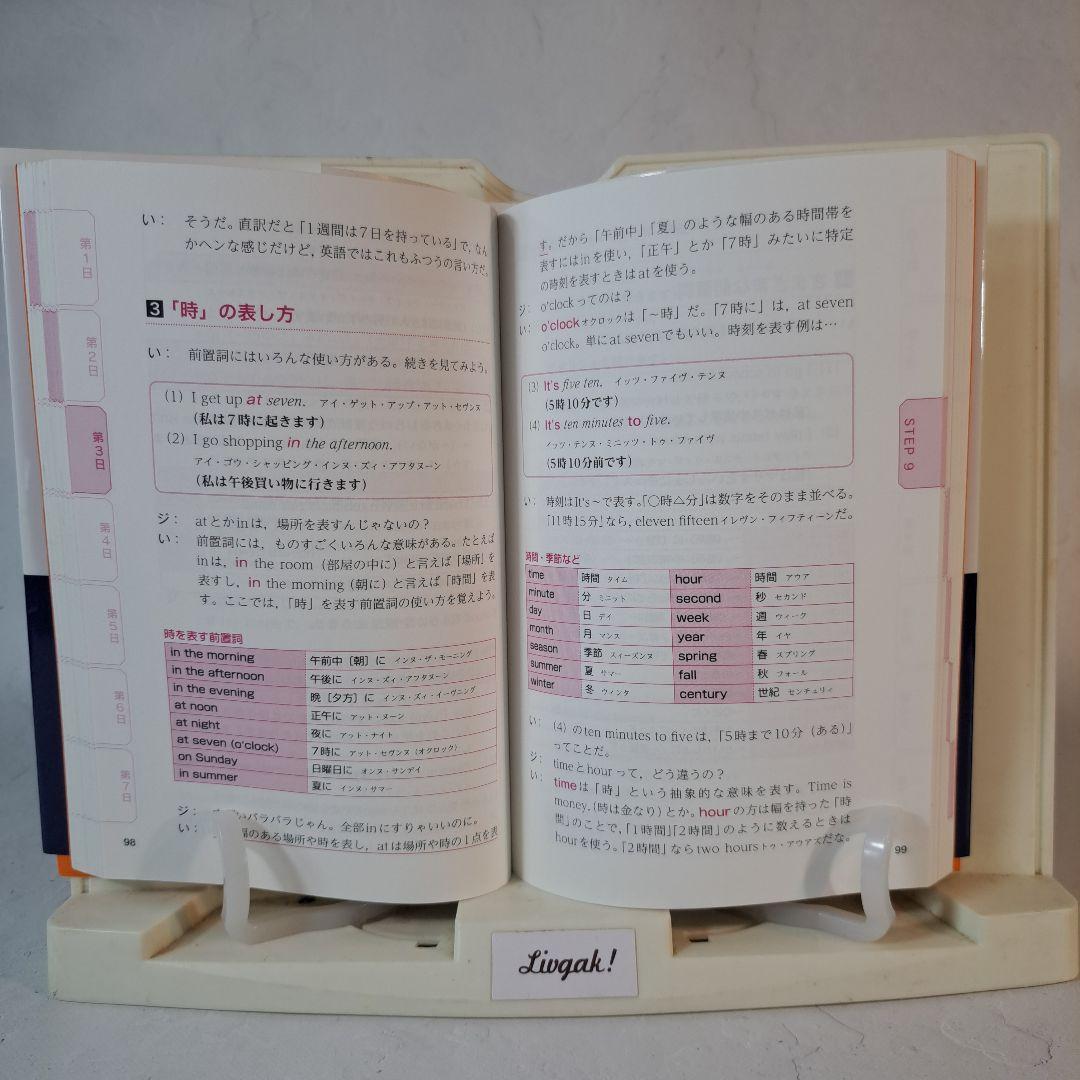 い： そうだ。直訳だと「1週間は7日を持っている」で，なん
かヘンな感じだけど，英語ではこれもふつうの言い方だ。
3 「時」の表し方
い： 前置詞にはいろんな使い方がある。続きを見てみよう。
(1) I get up at seven. アイ・ゲット・アップ・アット・セヴンヌ
(私は7時に起きます)
(2) I go shopping in the afternoon.
アイ・ゴウ・シャッピング・インヌ・ズィ・アフタヌーン
(私は午後買い物に行きます)
ジ： atとかinは，場所を表すんじゃないの？
い： 前置詞には，ものすごくいろんな意味がある。たとえば
inは，in the room（部屋の中に）と言えば「場所」を
表すし，in the morning（朝に）と言えば「時間」を表
す。ここでは，「時」を表す前置詞の使い方を覚えよう。
時を表す前置詞
in the morning 午前中［朝］に インヌ・ザ・モーニング
in the afternoon 午後に インヌ・ズィ・アフタヌーン
in the evening 晩［夕方］に インヌ・ズィ・イーヴニング
at noon 正午に アット・ヌーン
at night 夜に アット・ナイト
at seven (o'clock) 7時に アット・セヴンヌ（オクロック）
on Sunday 日曜日に オンヌ・サンデイ
in summer 夏に インヌ・サマー
ジ： バラバラじゃん。全部inにすりゃいいのに。
い： 幅のある場所や時を表し，atは場所や時の1点を表
98
第1日
第2日
第3日
第4日
第5日
第6日
第7日
す。だから「午前中」「夏」のような幅のある時間帯を
表すにはinを使い，「正午」とか「7時」みたいに特定
の時刻を表すときはatを使う。
ジ： o'clockってのは？
い： o'clockオクロックは「〜時」だ。「7時に」は，at seven
o'clock。単にat sevenでもいい。時刻を表す例は…
(3) It's five ten. イッツ・ファイヴ・テンヌ
(5時10分です)
(4) It's ten minutes to five.
イッツ・テンヌ・ミニッツ・トゥ・ファイヴ
(5時10分前です)
い： 時刻はIt's〜で表す。「○時△分」は数字をそのまま並べる。
「11時15分」なら，eleven fifteenイレヴン・フィフティーンだ。
時間・季節など
time 時間 タイム hour 時間 アウア
minute 分 ミニット second 秒 セカンド
day 日 デイ week 週 ウィーク
month 月 マンス year 年 イヤ
season 季節 スィーズンヌ spring 春 スプリング
summer 夏 サマー fall 秋 フォール
winter 冬 ウィンタ century 世紀 センチュリィ
い： (4) のten minutes to fiveは，「5時まで10分（ある）」
ってことだ。
ジ： timeとhourって，どう違うの？
い： timeは「時」という抽象的な意味を表す。Time is
money.(時は金なり）とか。hourの方は幅を持った「時
間」のことで，「1時間」「2時間」のように数えるときは
hourを使う。『2時間」ならtwo hoursトゥ・アウアズだな。
99
STEP 9
Livgak!